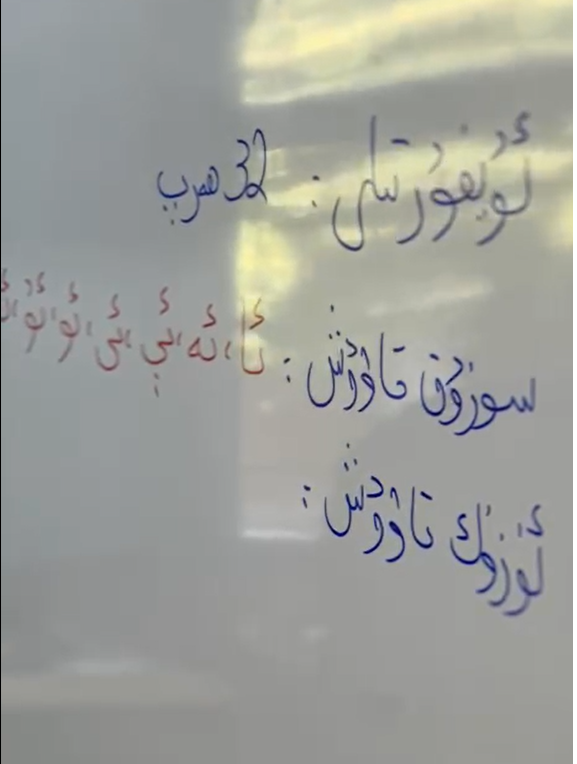 ئۇيغۇر تىلى: 32 ھەرپ
سوزۇق تاۋۇش: ئا، ئە، ئې، ئى، ئو، ئۇ،
ئۈزۈك تاۋۇش: